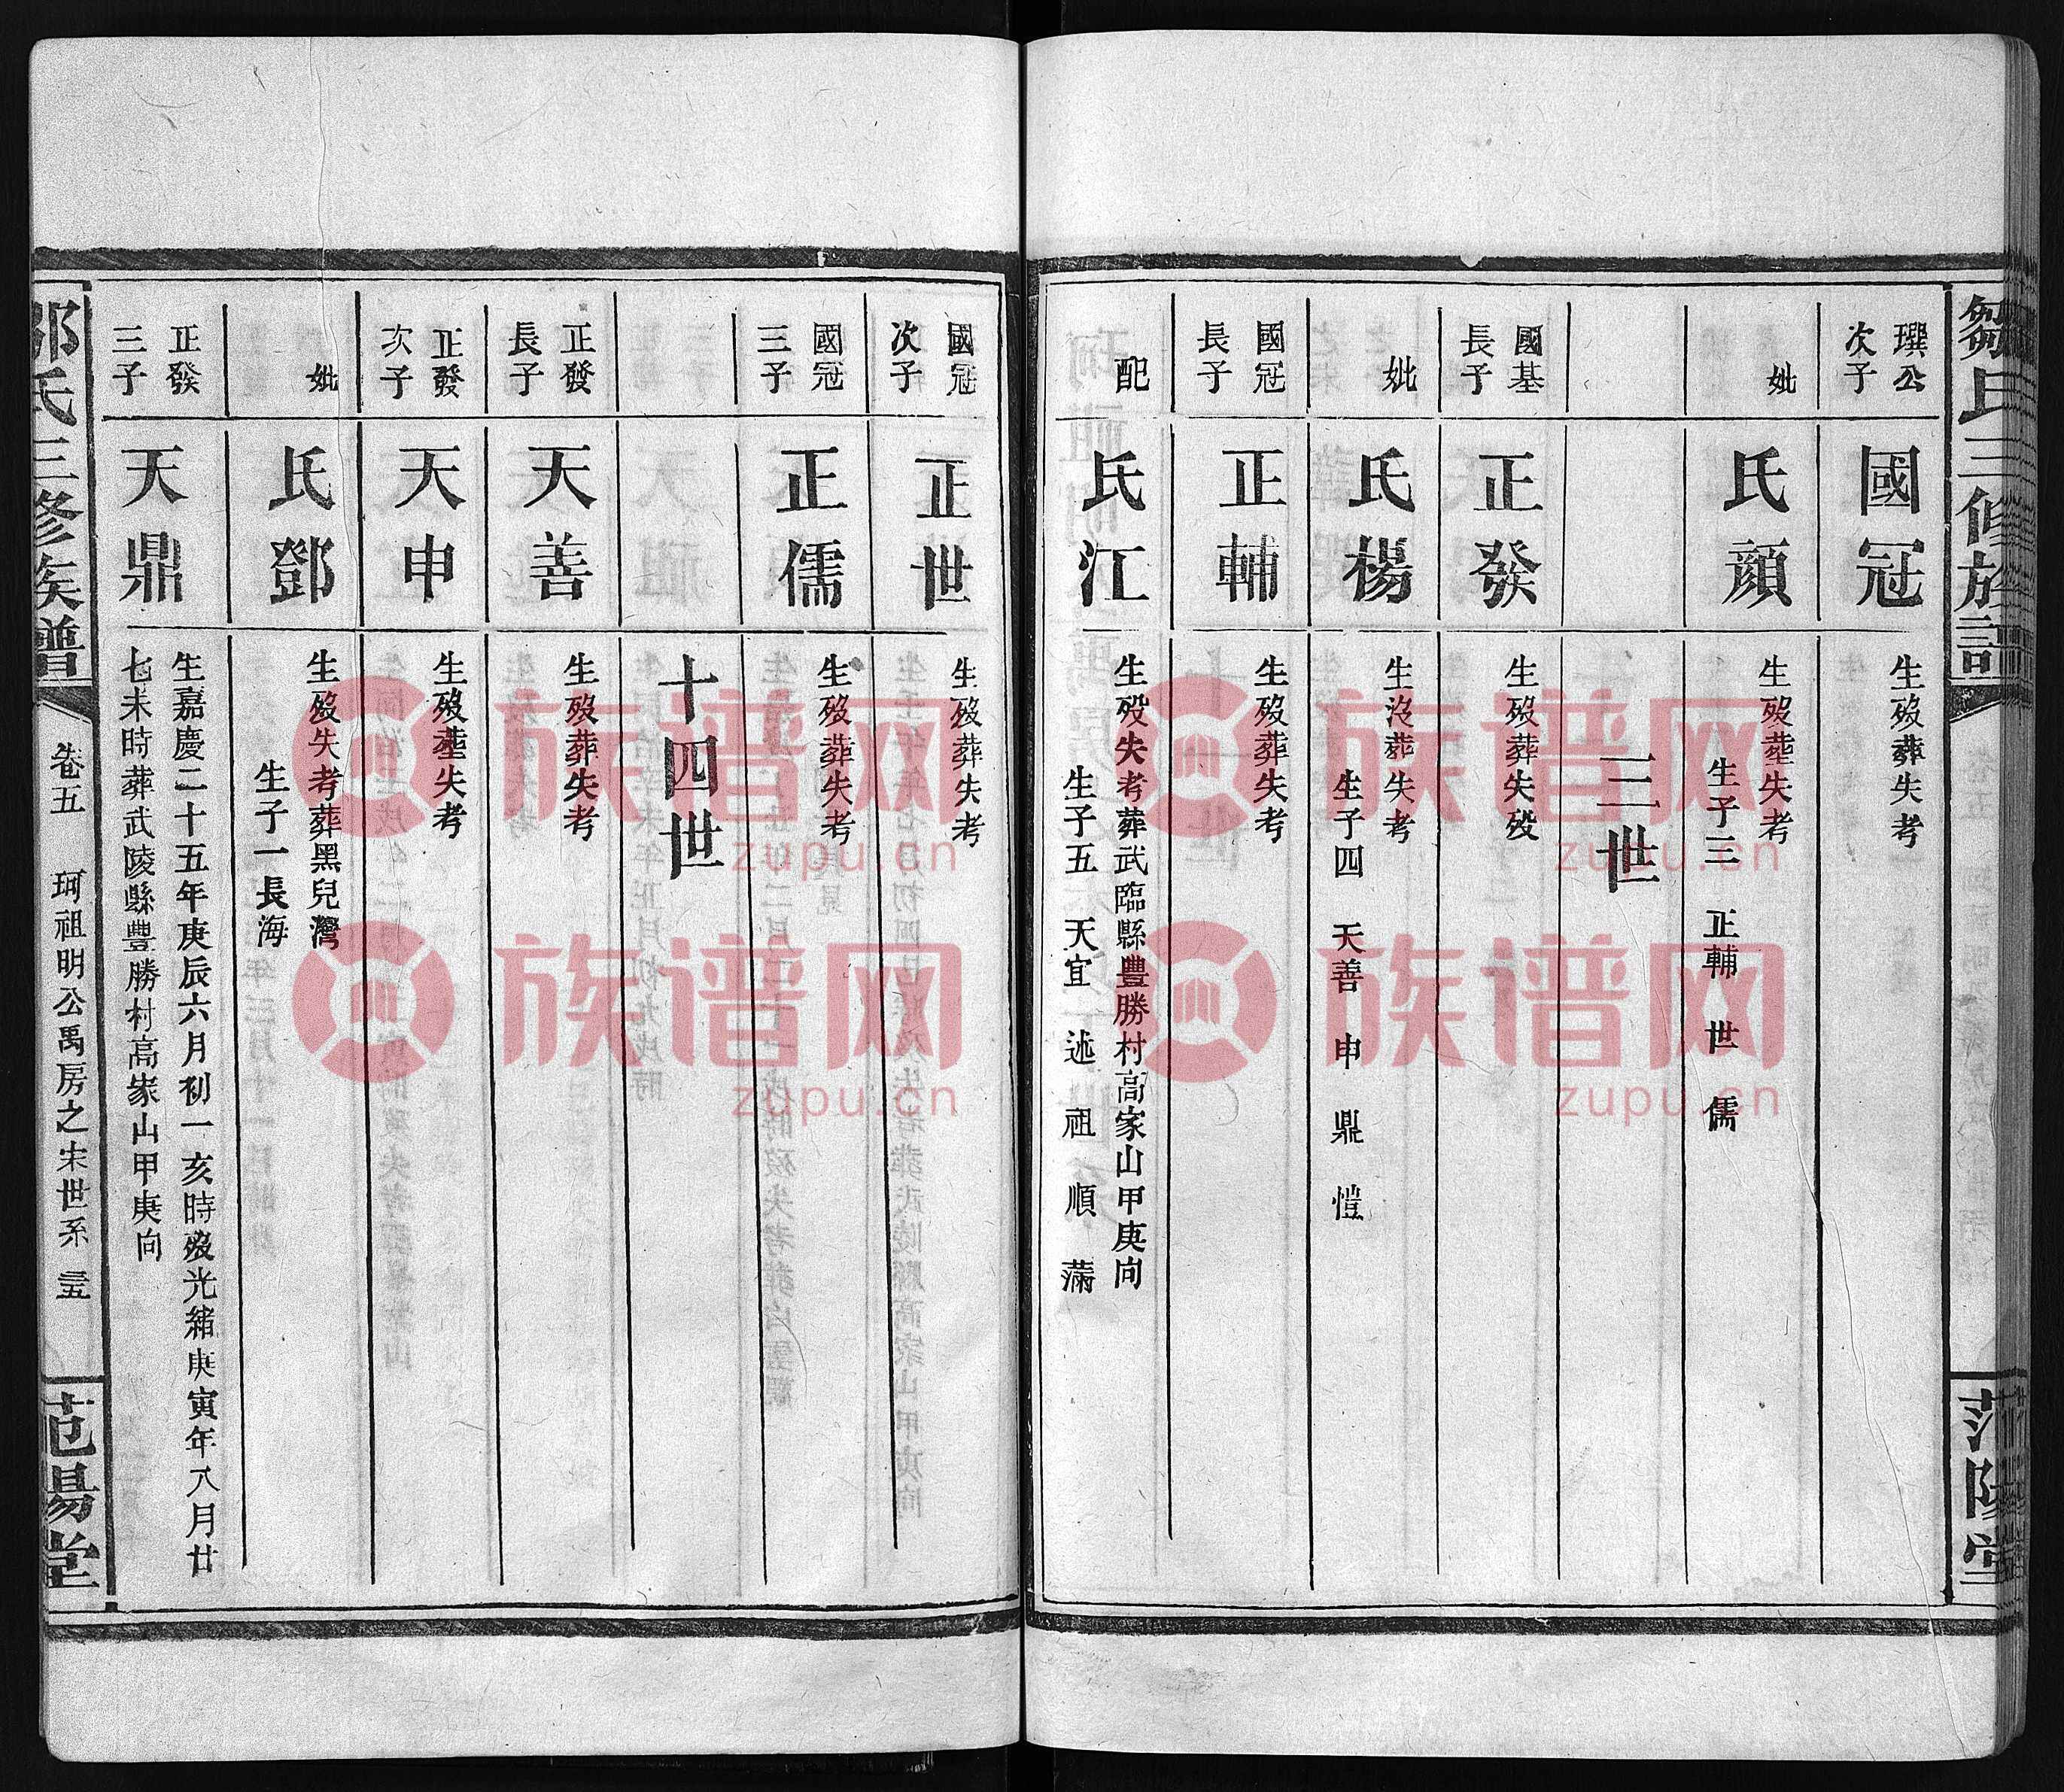 氏三修族譜
范陽堂
璵公次子
國冠
生歿葬失考
妣
氏顔
生歿塟失考
生子三 正輔 世 儒
三世
國基長子
正發
生歿葬失歿
妣
氏楊
生沒葬失考
生子四 天善 申 鼎 愷
國冠長子
正輔
生歿葬失考
配
氏江
生歿失考葬武臨縣豐勝村高家山甲庚向
生子五 天宜 述 祖 順 滿
國冠次子
正世
生歿葬失考
國冠三子
正儒
生歿葬失考
十四世
正發長子
天善
生歿葬失考
正發次子
天申
生歿塟失考
妣
氏鄧
生歿失考葬黑兒灣
生子一長海
正發三子
天鼎
生嘉慶二十五年庚辰六月初一亥時歿光緒庚寅年八月廿
七未時葬武陵縣豐勝村高家山甲庚向
鄒氏三修族譜
卷五 珂祖明公禹房之宋世系 三五
范陽堂
族谱网
zupu.cn
族谱网
zupu.cn
族谱网
zupu.cn
族谱网
zupu.cn